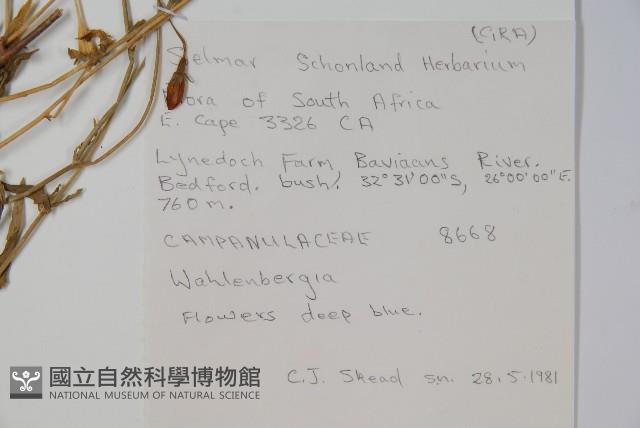 (GRA)
Selmar Schonland Herbarium
Flora of South Africa
E. Cape 3326 CA
Lynedoch Farm, Baviaans River.
Bedford. bush. 32°31'00"S, 26°00'00"E.
760 m.
CAMPANULACEAE 8668
Wahlenbergia
Flowers deep blue.
C.J. Skead s.n. 28.5.1981
國立自然科學博物館
NATIONAL MUSEUM OF NATURAL SCIENCE